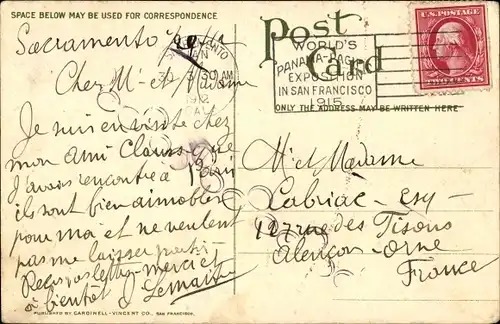 SPACE BELOW MAY BE USED FOR CORRESPONDENCE
Post Card
WORLD'S
PANAMA-PACIFIC
EXPOSITION
IN SAN FRANCISCO
1915
ONLY THE ADDRESS MAY BE WRITTEN HERE
U.S. POSTAGE
TWO CENTS
SACRAMENTO
30 AM
1912
CAL.
Sacramento
Cher Mr et Madame
Je suis en visite chez
mon ami Clauss que
J'avais rencontré à Paris
ils sont bien aimables
pour moi et ne veulent
pas me laisser partir
Reçu pas lettre merci et
à bientôt J Lemaire
Mr et Madame
Cabriac - esq -
127 rue des Tisons
Alençon - Orne
France
PUBLISHED BY CARDINELL-VINCENT CO., SAN FRANCISCO.